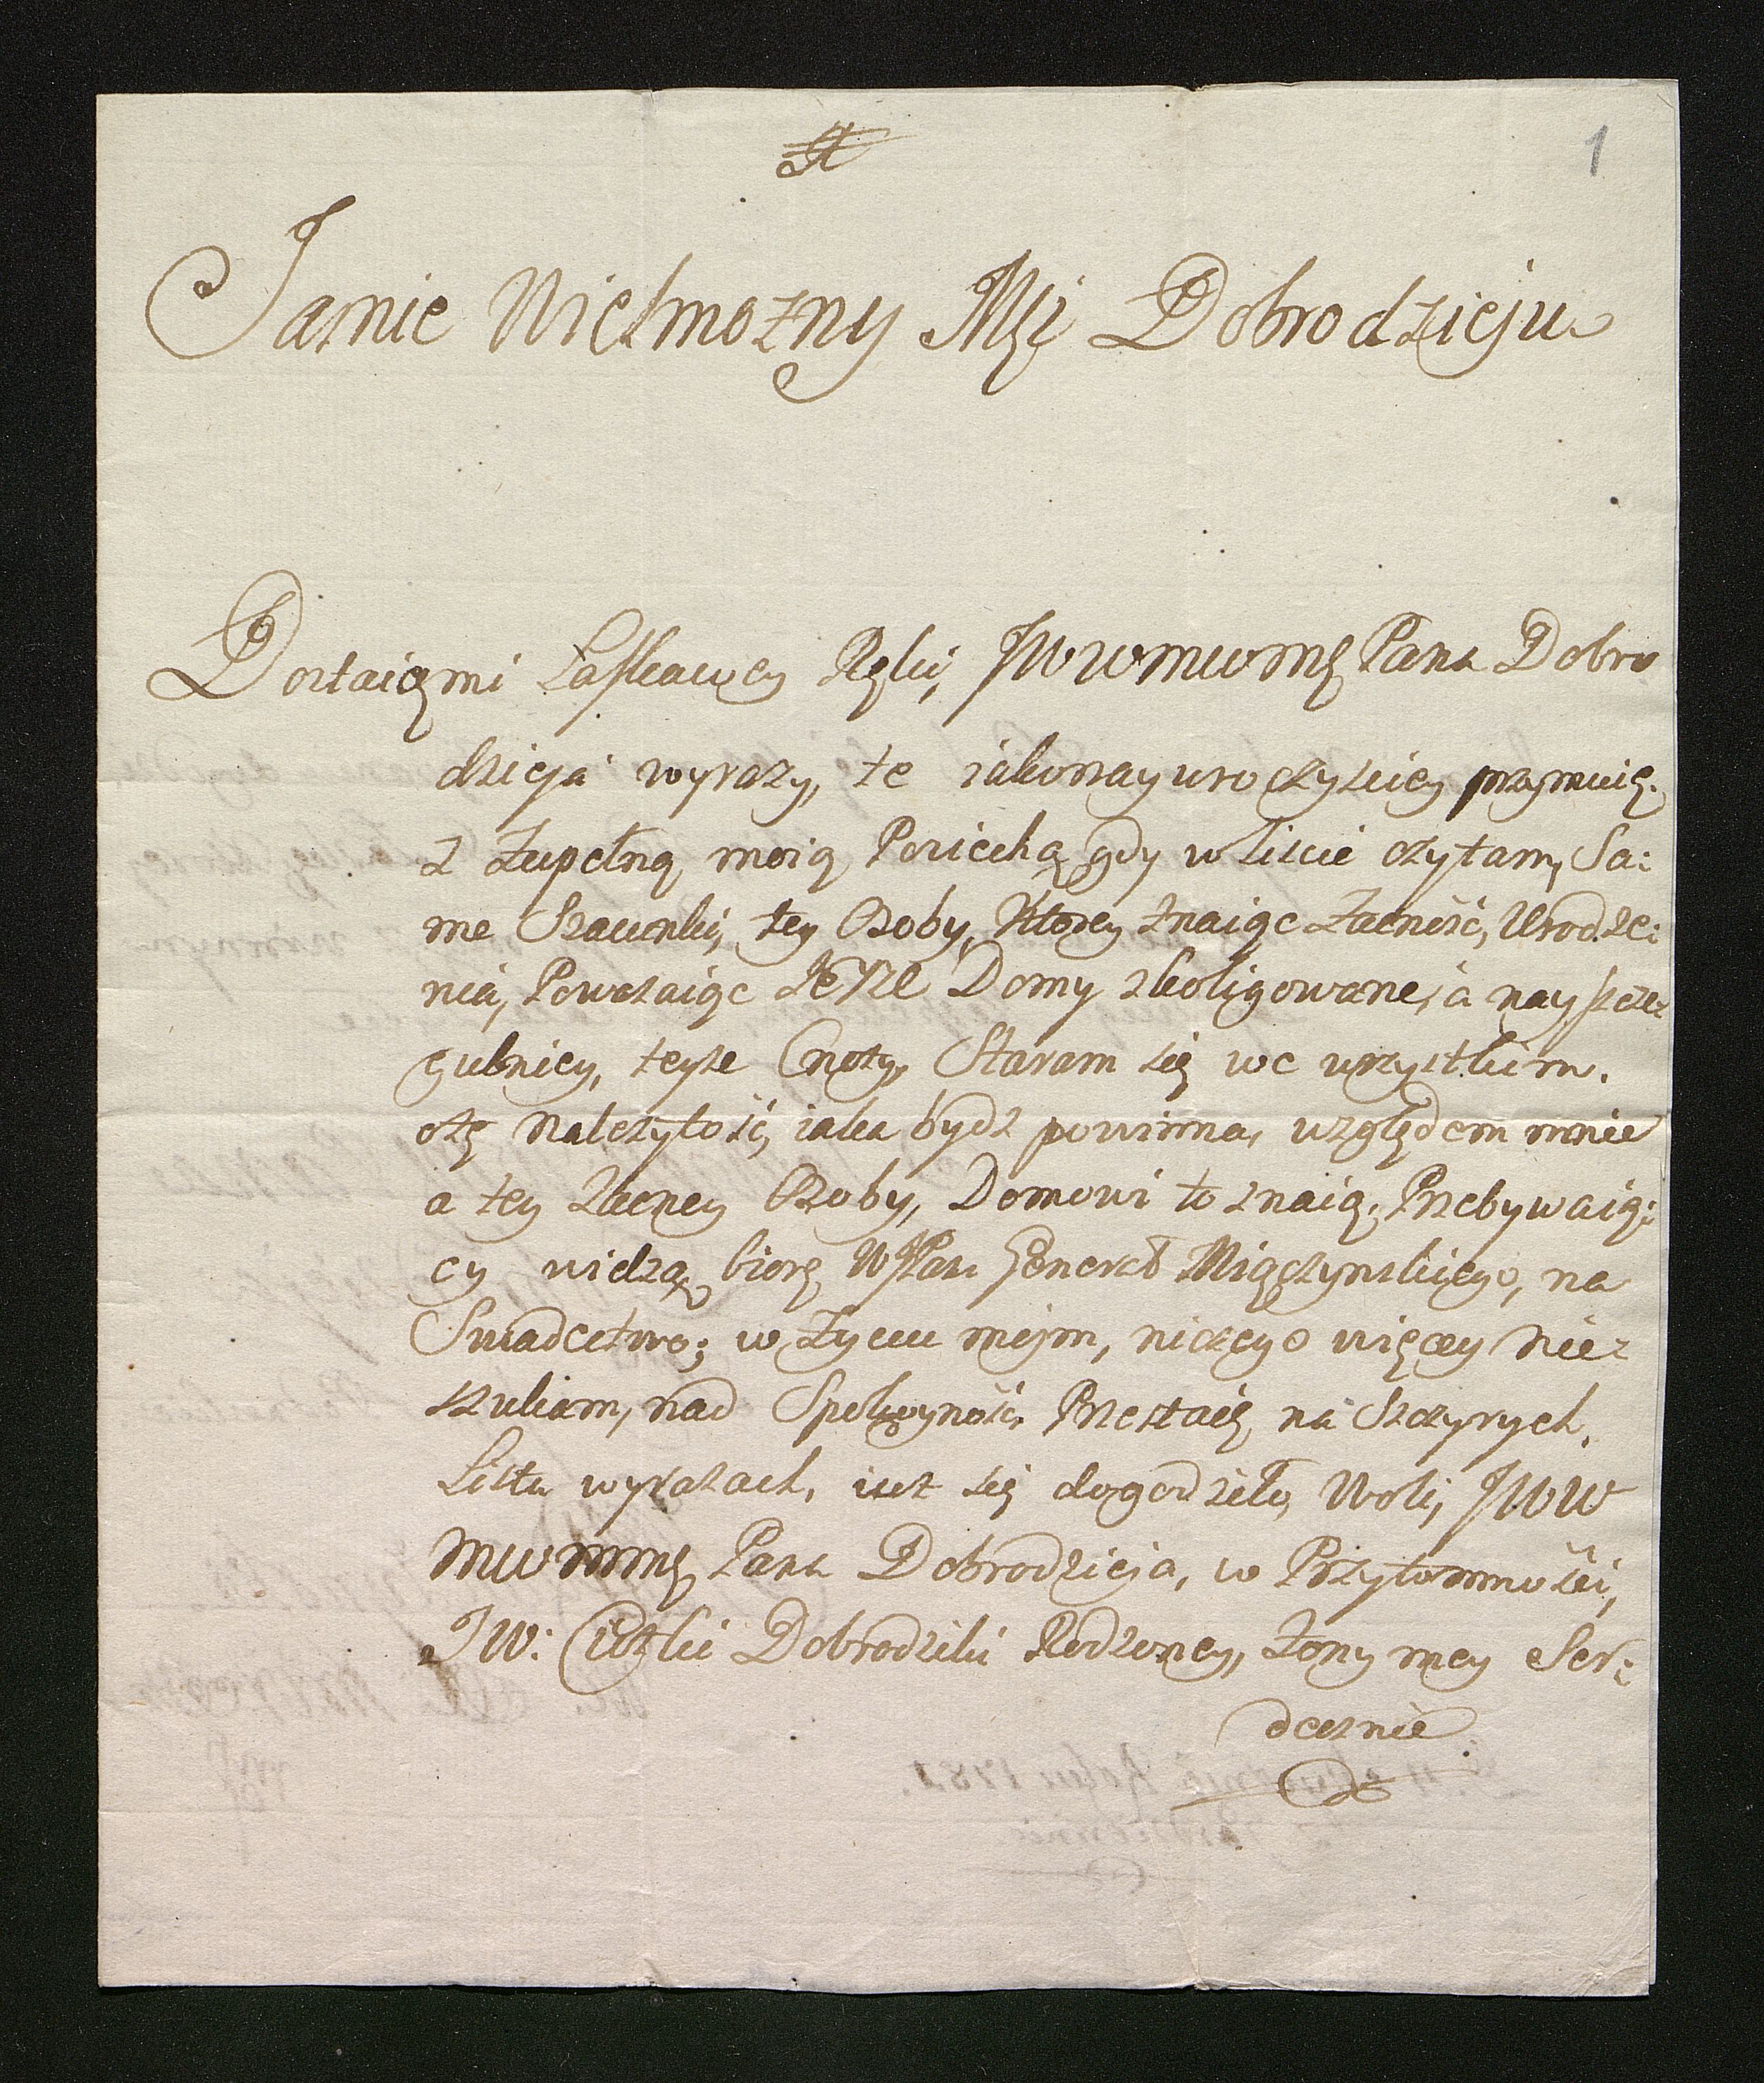 1
Jasnie Wielmozny Mci Dobrodzieju
Dostaię mi Łaskawey Ręki, JWWMWMę Pana Dobro
dzieja wyrazy, te iako nayuroczyściey przymuię.
z Zupełną moią Pociechą gdy w Liście czytam, Sa:
me Szacunki, tey Osoby, Ktorey znaiąc Zacność, Urodze:
nia, Poważaiąc Też że Domy zkoligowane, a nayszcze:
gulniey, teyże Cnoty, Staram się we wszystkim.
czę Należytość, iaka bydz powinna, względem mnie
a tey Zacney Osoby, Domowi to znaią, Przebywaią:
cy widzą, biorę WJPana Generał Miączynskiego, na
Swiadectwo; w Zyciu mojm, niczego więcey nie:
szukam, nad Spokoyność, Przestaię na Szczyrych,
Listu wyrazach, iuż się dogodziło, Woli, JWW
MWMMę Pana Dobrodzieja, w Przytomności,
JW: Ciotki Dobrodziki Rodzoney, Żony mey Ser:
decznie